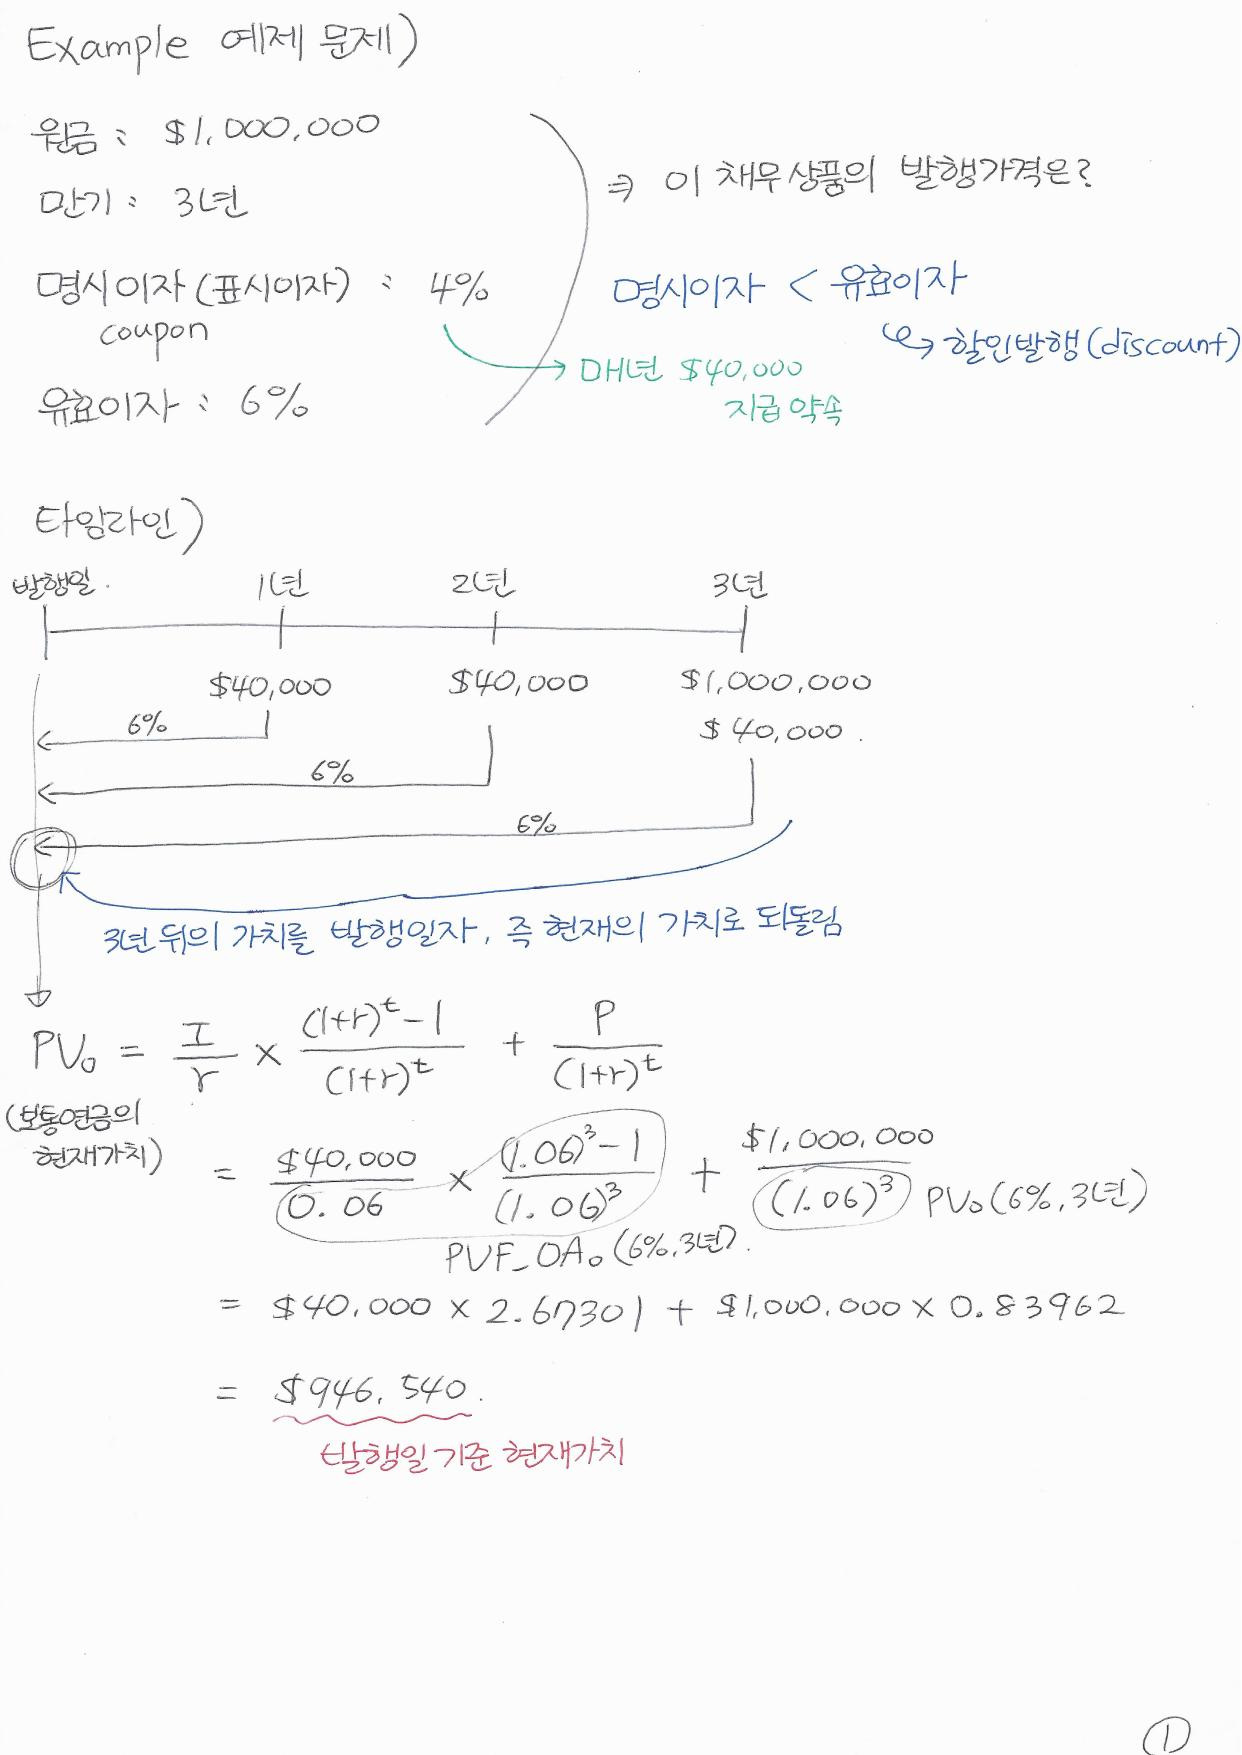 Example 예제 문제)
원금 : $1,000,000
⇒ 이 채무상품의 발행가격은?
만기 : 3년
명시이자 (표시이자) : 4%
coupon
명시이자 < 유효이자
↪ 할인발행 (discount)
→ 매년 $40,000
지급 약속
유효이자 : 6%
타임라인)
발행일. 1년 2년 3년
$40,000 $40,000 $1,000,000
$40,000.
6%
6%
6%
3년 뒤의 가치를 발행일자, 즉 현재의 가치로 되돌림
PV₀ = I/r × ((1+r)^t - 1)/(1+r)^t + P/(1+r)^t
(보통연금의
현재가치)
= $40,000/0.06 × ((1.06)^3 - 1)/(1.06)^3 + $1,000,000/(1.06)^3 PV₀(6%,3년)
PVF_OA₀(6%,3년).
= $40,000 × 2.67301 + $1,000,000 × 0.83962
= $946,540.
발행일 기준 현재가치
①